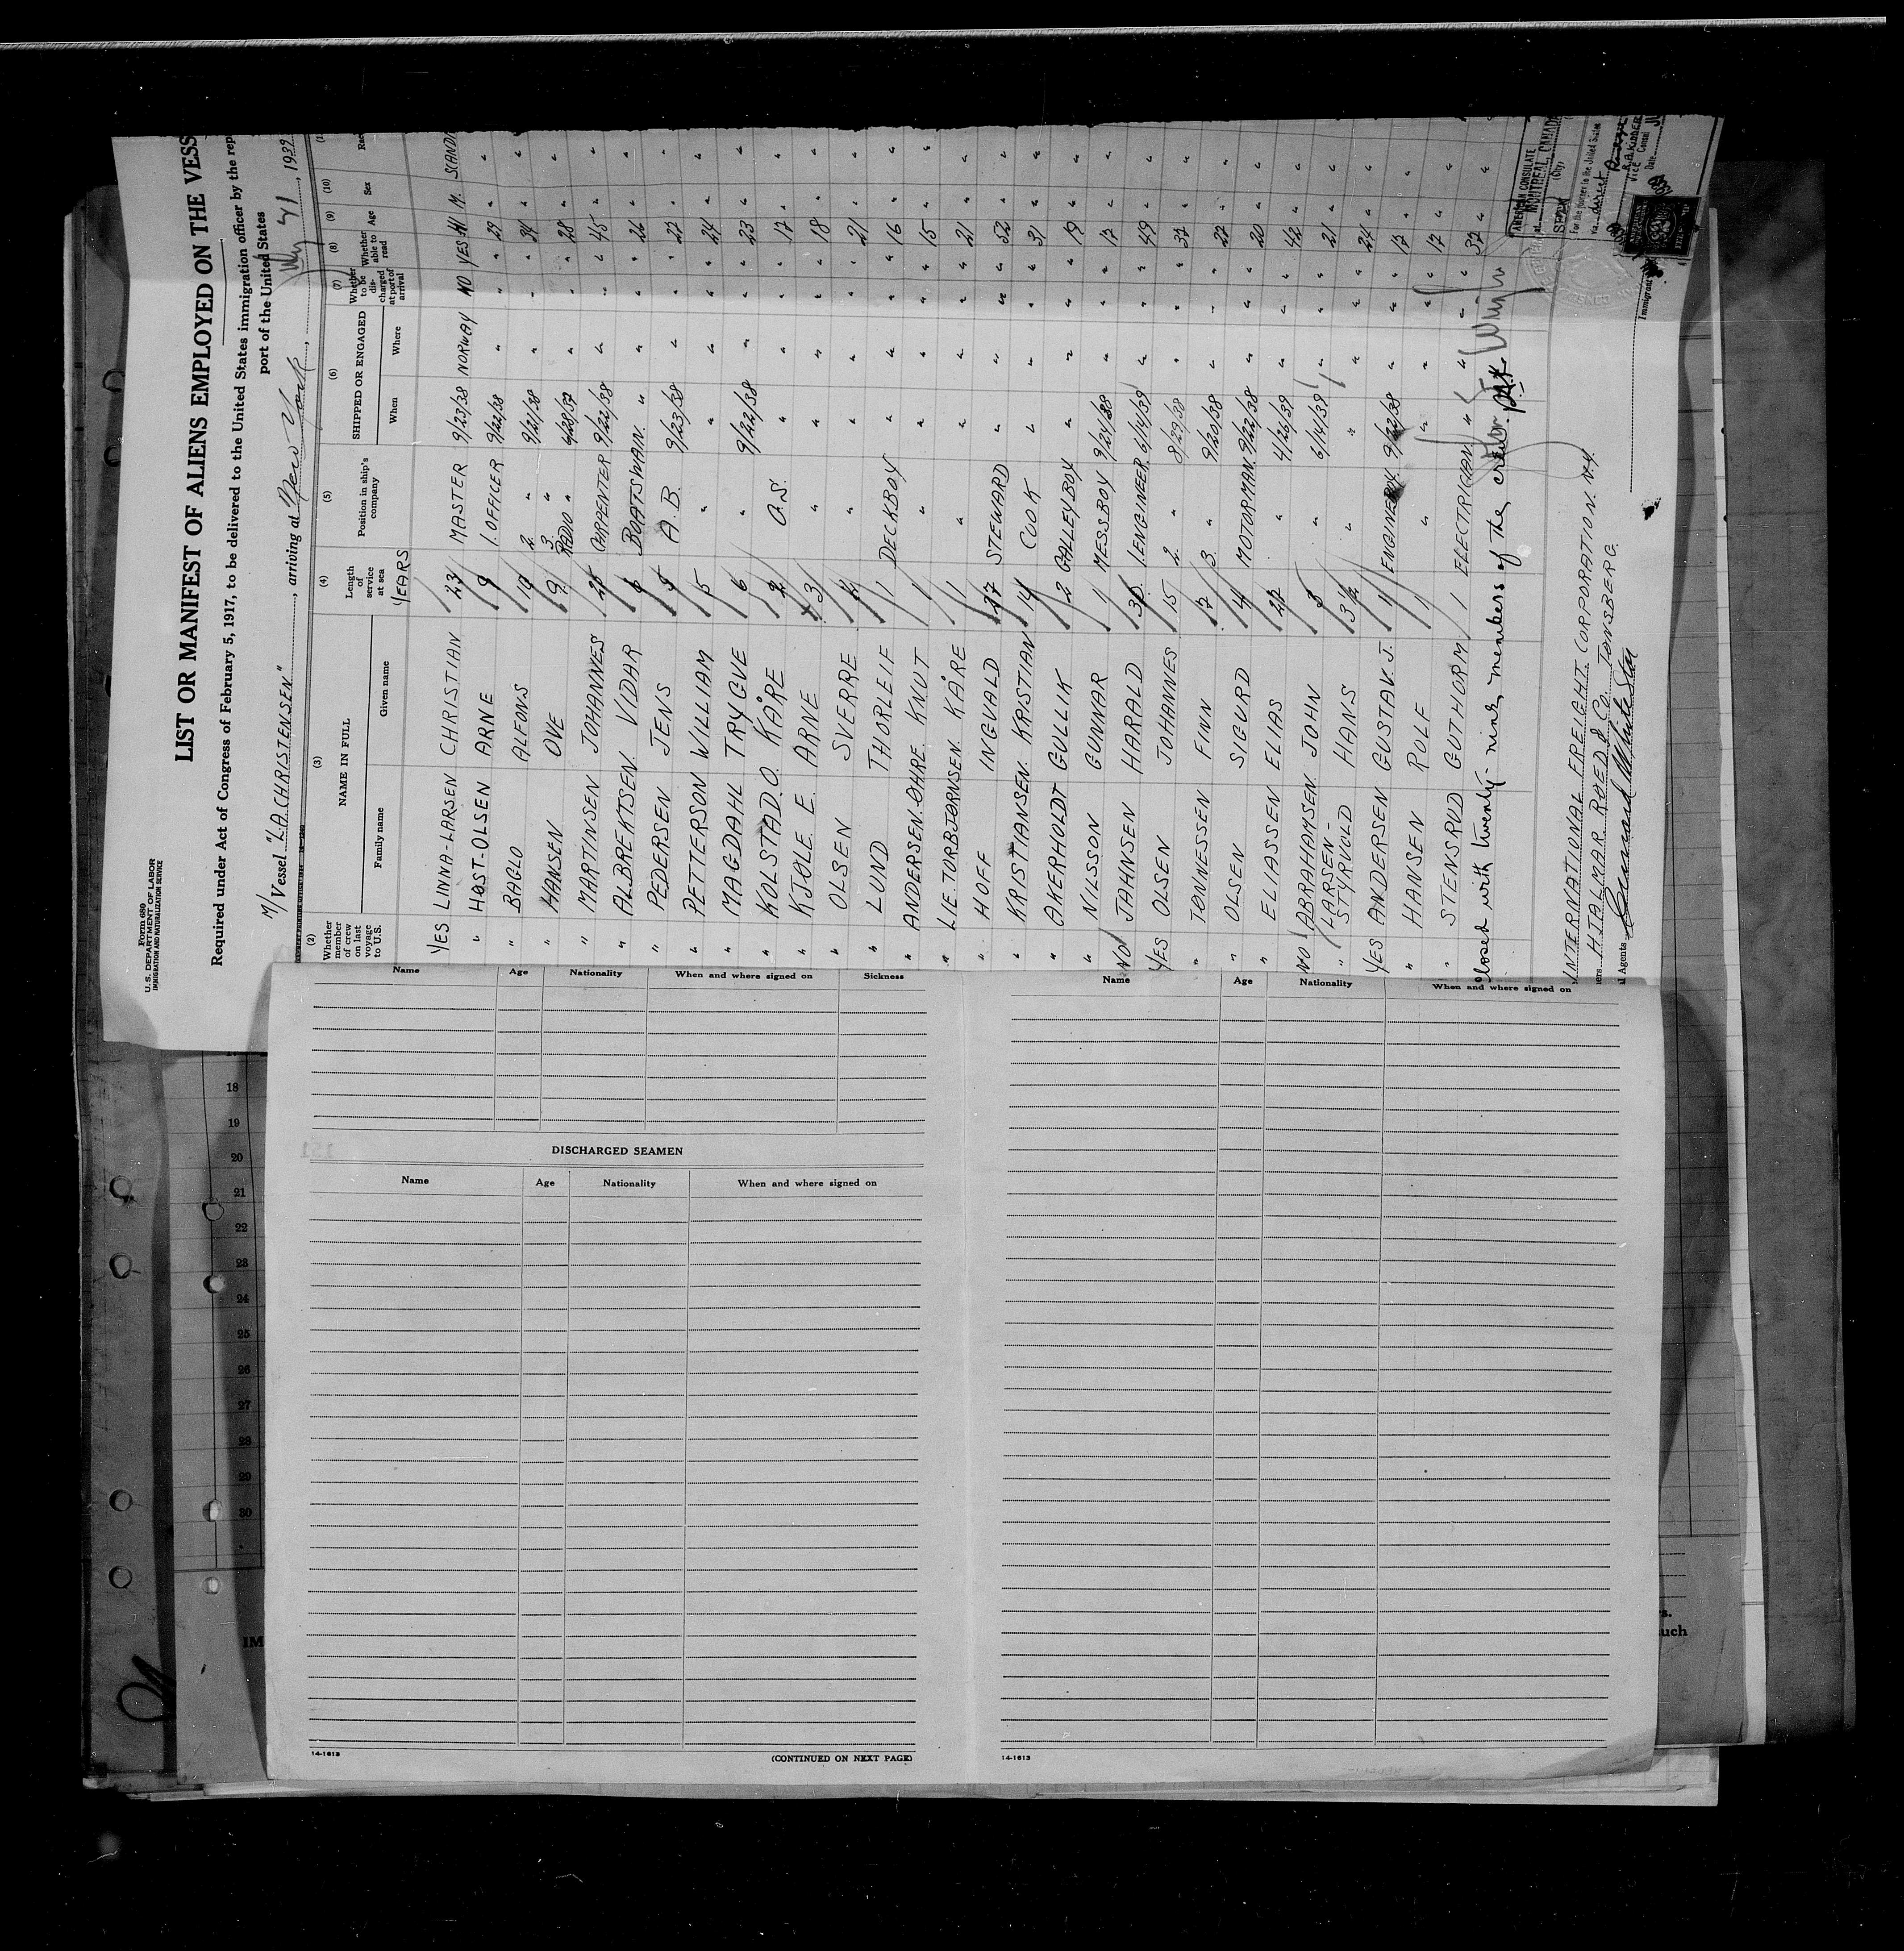 Form 680
U. S. DEPARTMENT OF LABOR
IMMIGRATION AND NATURALIZATION SERVICE
LIST OR MANIFEST OF ALIENS EMPLOYED ON THE VESS
Required under Act of Congress of February 5, 1917, to be delivered to the United States immigration officer by the rep
port of the United States
M/ Vessel "LA CHRISTENSEN", arriving at New York, 1939
(2) (3) (4) (5) (6) (7) (8) (9) (10)
Whether member of crew on last voyage to U.S. NAME IN FULL Length of service at sea Position in ship's company SHIPPED OR ENGAGED Whether to be discharged at port of arrival Whether able to read Age Sex Rac
Family name Given name YEARS When Where
YES LINNA-LARSEN CHRISTIAN 23 MASTER 9/23/38 NORWAY NO YES 41 M. SCANDI
" HØST-OLSEN ARNE 9 1. OFFICER 9/22/38 " " " 29 " "
" BAGLO ALFONS 2 " 9/21/38 " " " 34 " "
" HANSEN OVE 9 3. " " " " 28 " "
" MARTINSEN JOHANNES CARPENTER 9/22/38 " " " 45 " "
" ALBREKTSEN VIDAR 6 BOATSWAIN " " " " 26 " "
" PEDERSEN JENS A.B. 9/23/38 " " " 22 " "
" PETTERSON WILLIAM 5 " " " " " 24 " "
" MAGDAHL TRYGVE 6 " 9/22/38 " " " 23 " "
" KOLSTAD O. KÅRE 2 O.S. " " " " 17 " "
" KJØLE E. ARNE 3 " " " " " 18 " "
" OLSEN SVERRE " " " " " 21 " "
" LUND THORLEIF 1 DECKBOY " " " " 16 " "
" ANDERSEN-ØHRE KNUT 1 " " " " " 15 " "
" LIE-TORBJØRNSEN KÅRE 1 " " " " " 21 " "
" HOFF INGVALD 27 STEWARD " " " " 52 " "
" KRISTIANSEN KRISTIAN 14 COOK " " " " 31 " "
" AKERHOLDT GULLIK 2 GALLEYBOY " " " " 19 " "
" NILSSON GUNNAR 1 MESSBOY 9/24/38 " " " 17 " "
NO JAHNSEN HARALD 1. ENGINEER 6/14/39 " " " 49 " "
YES OLSEN JOHANNES 15 2. " 8/29/38 " " " 37 " "
" TØNNESSEN FINN 3. " 9/20/38 " " " 27 " "
" OLSEN SIGURD 4 MOTORMAN 9/22/38 " " " 20 " "
" ELIASSEN ELIAS 22 " 4/26/39 " " " 42 " "
NO ABRAHAMSEN JOHN 3 " 6/14/39 " " " 21 " "
" LARSEN-STYRVOLD HANS 3½ " " " " " 24 " "
YES ANDERSEN GUSTAV J. 1 ENGINEBOY 9/22/38 " " " 17 " "
" HANSEN ROLF 1 " " " " " 17 " "
" STENSRUD GUTHORM 1 ELECTRICIAN " " " " 37 " "
Closed with twenty-nine members of the crew.
INTERNATIONAL FREIGHT CORPORATION. N.Y.
HJALMAR RØED & Co. TØNSBERG.
l Agents
Immigrant
AMERICAN CONSULATE
at MONTREAL, CANADA
(City)
For the journey to the United States
via direct
R.A. KIDDER
Vice Consul
Date
Name Age Nationality When and where signed on Sickness
Name Age Nationality When and where signed on
DISCHARGED SEAMEN
Name Age Nationality When and where signed on
18
19
20
21
22
23
24
25
26
27
28
29
30
IM
s.
uch
151
14-1613
(CONTINUED ON NEXT PAGE)
14-1613